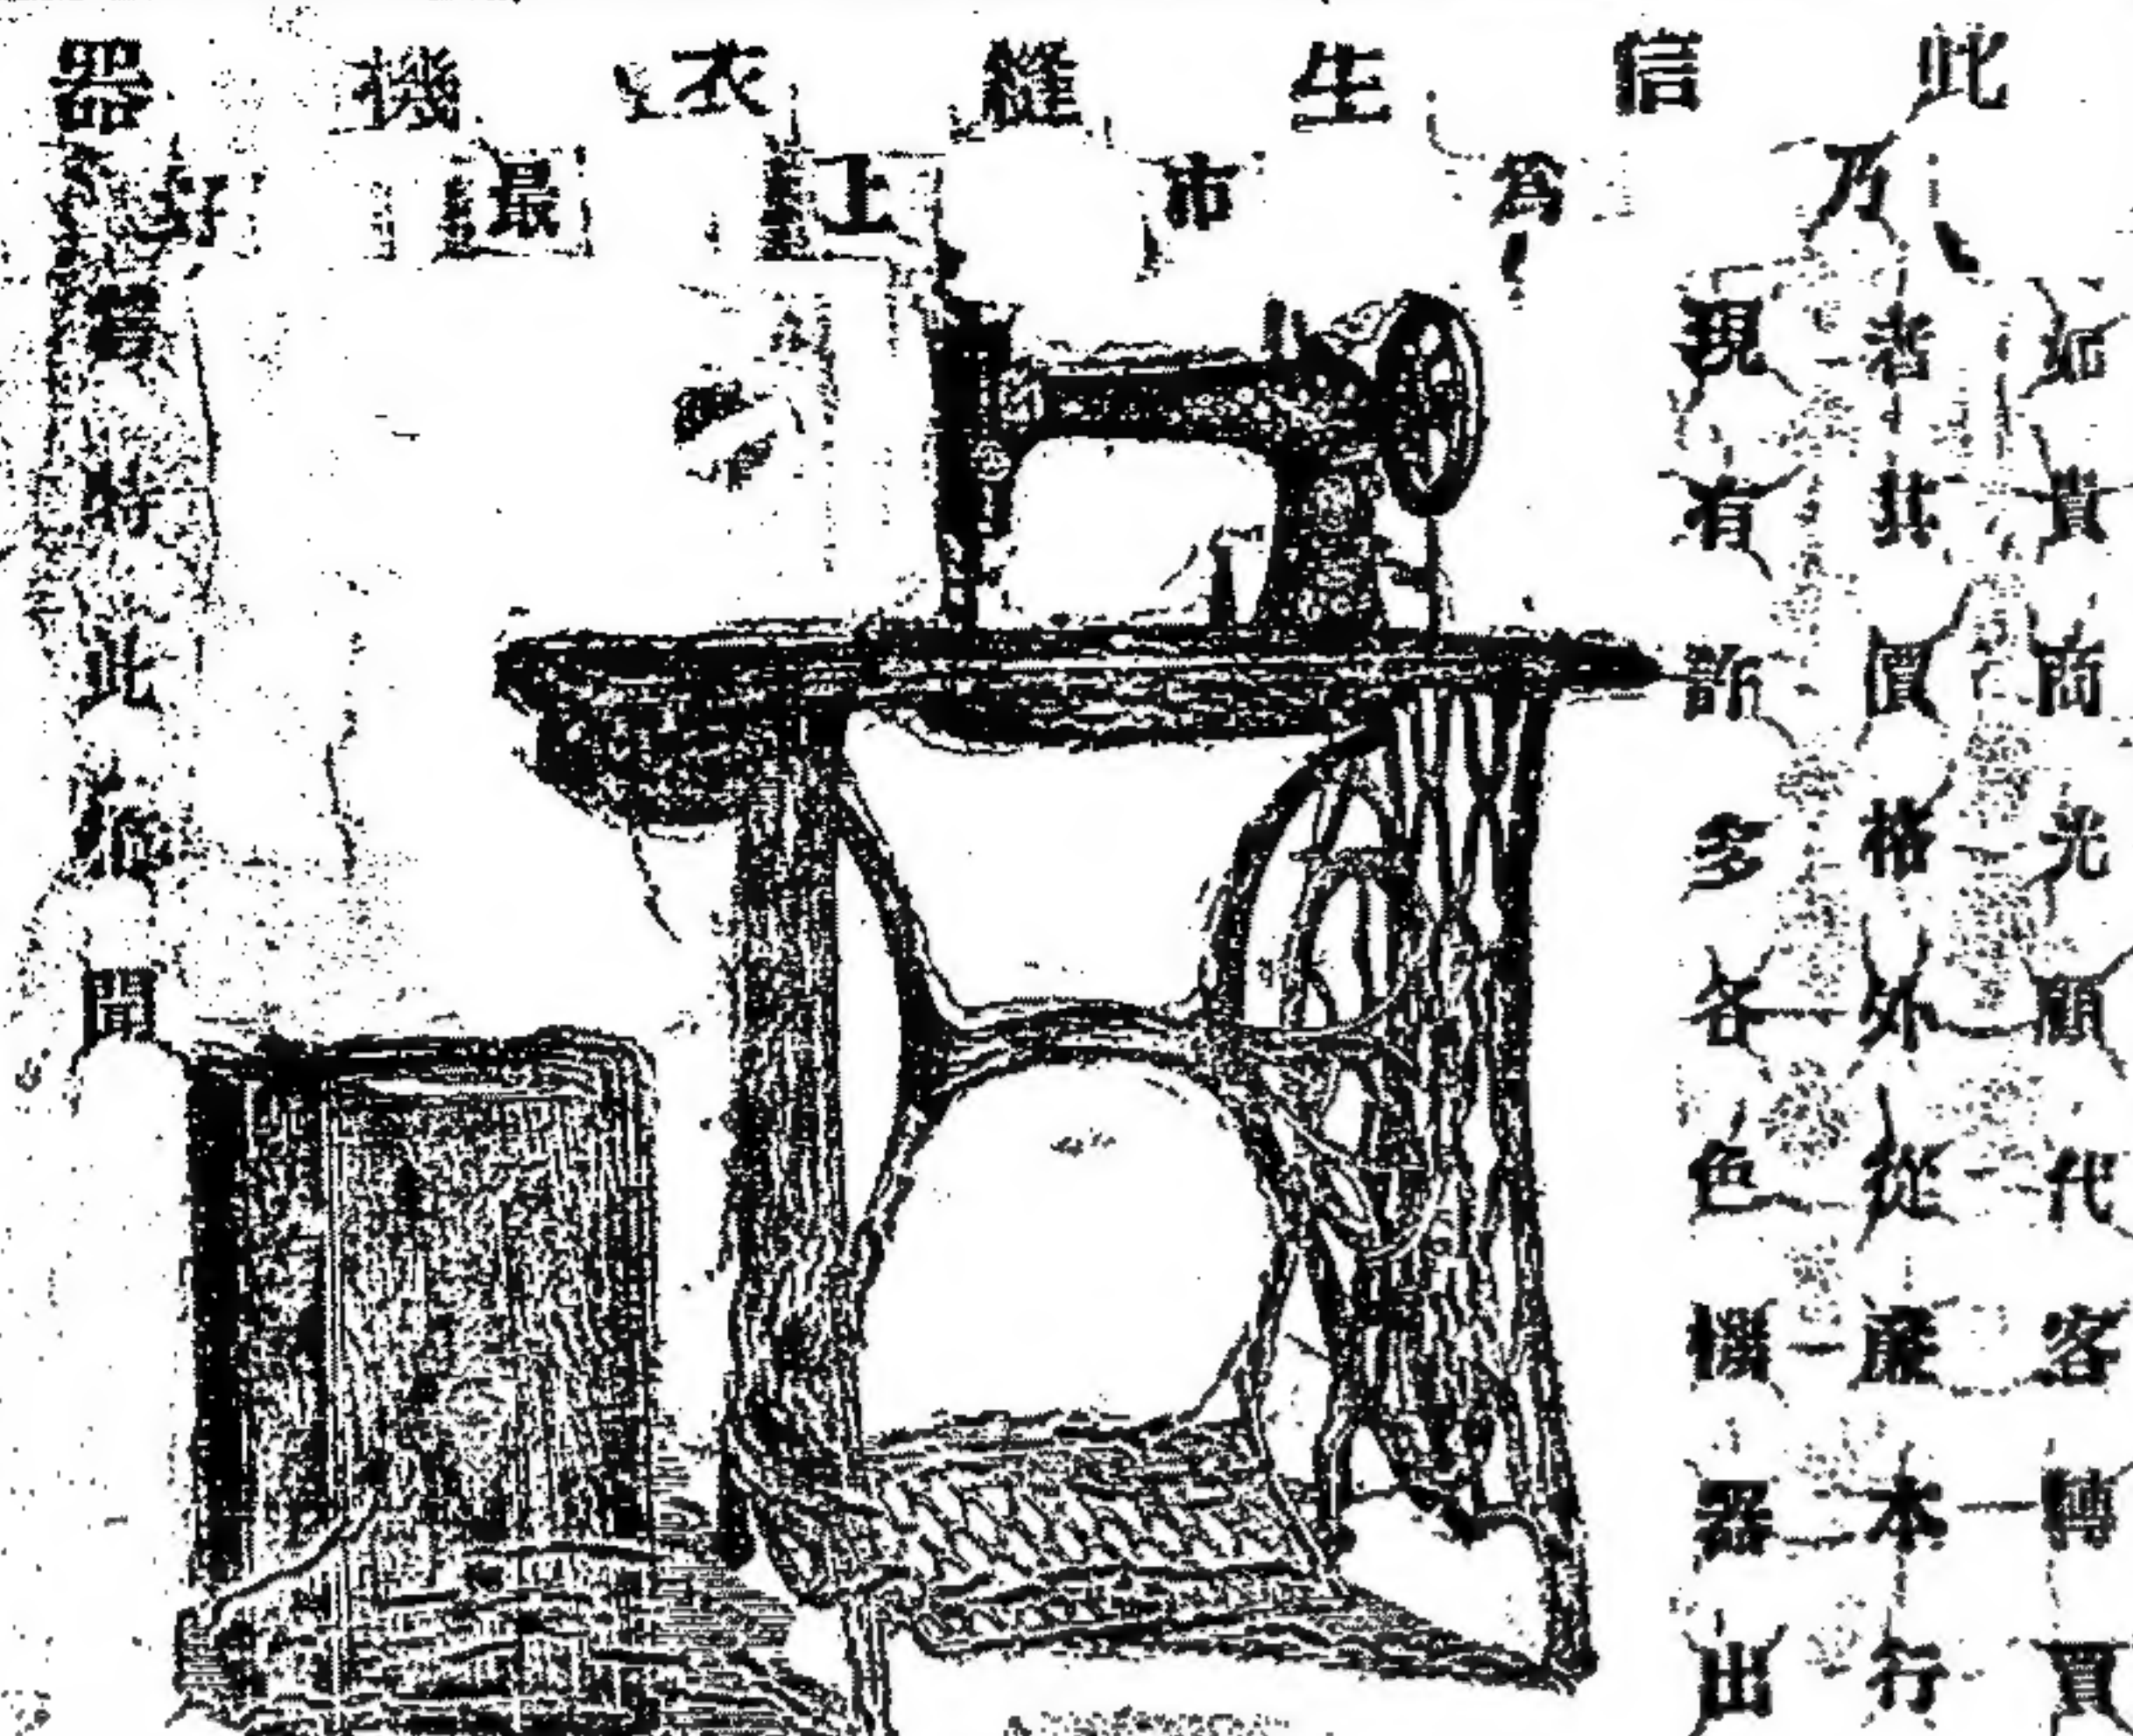 此信生縫衣機器
乃爲市上最好
貴商光顧代客轉買
者其價格外從廉本行
現有許多各色機器出
特此聞